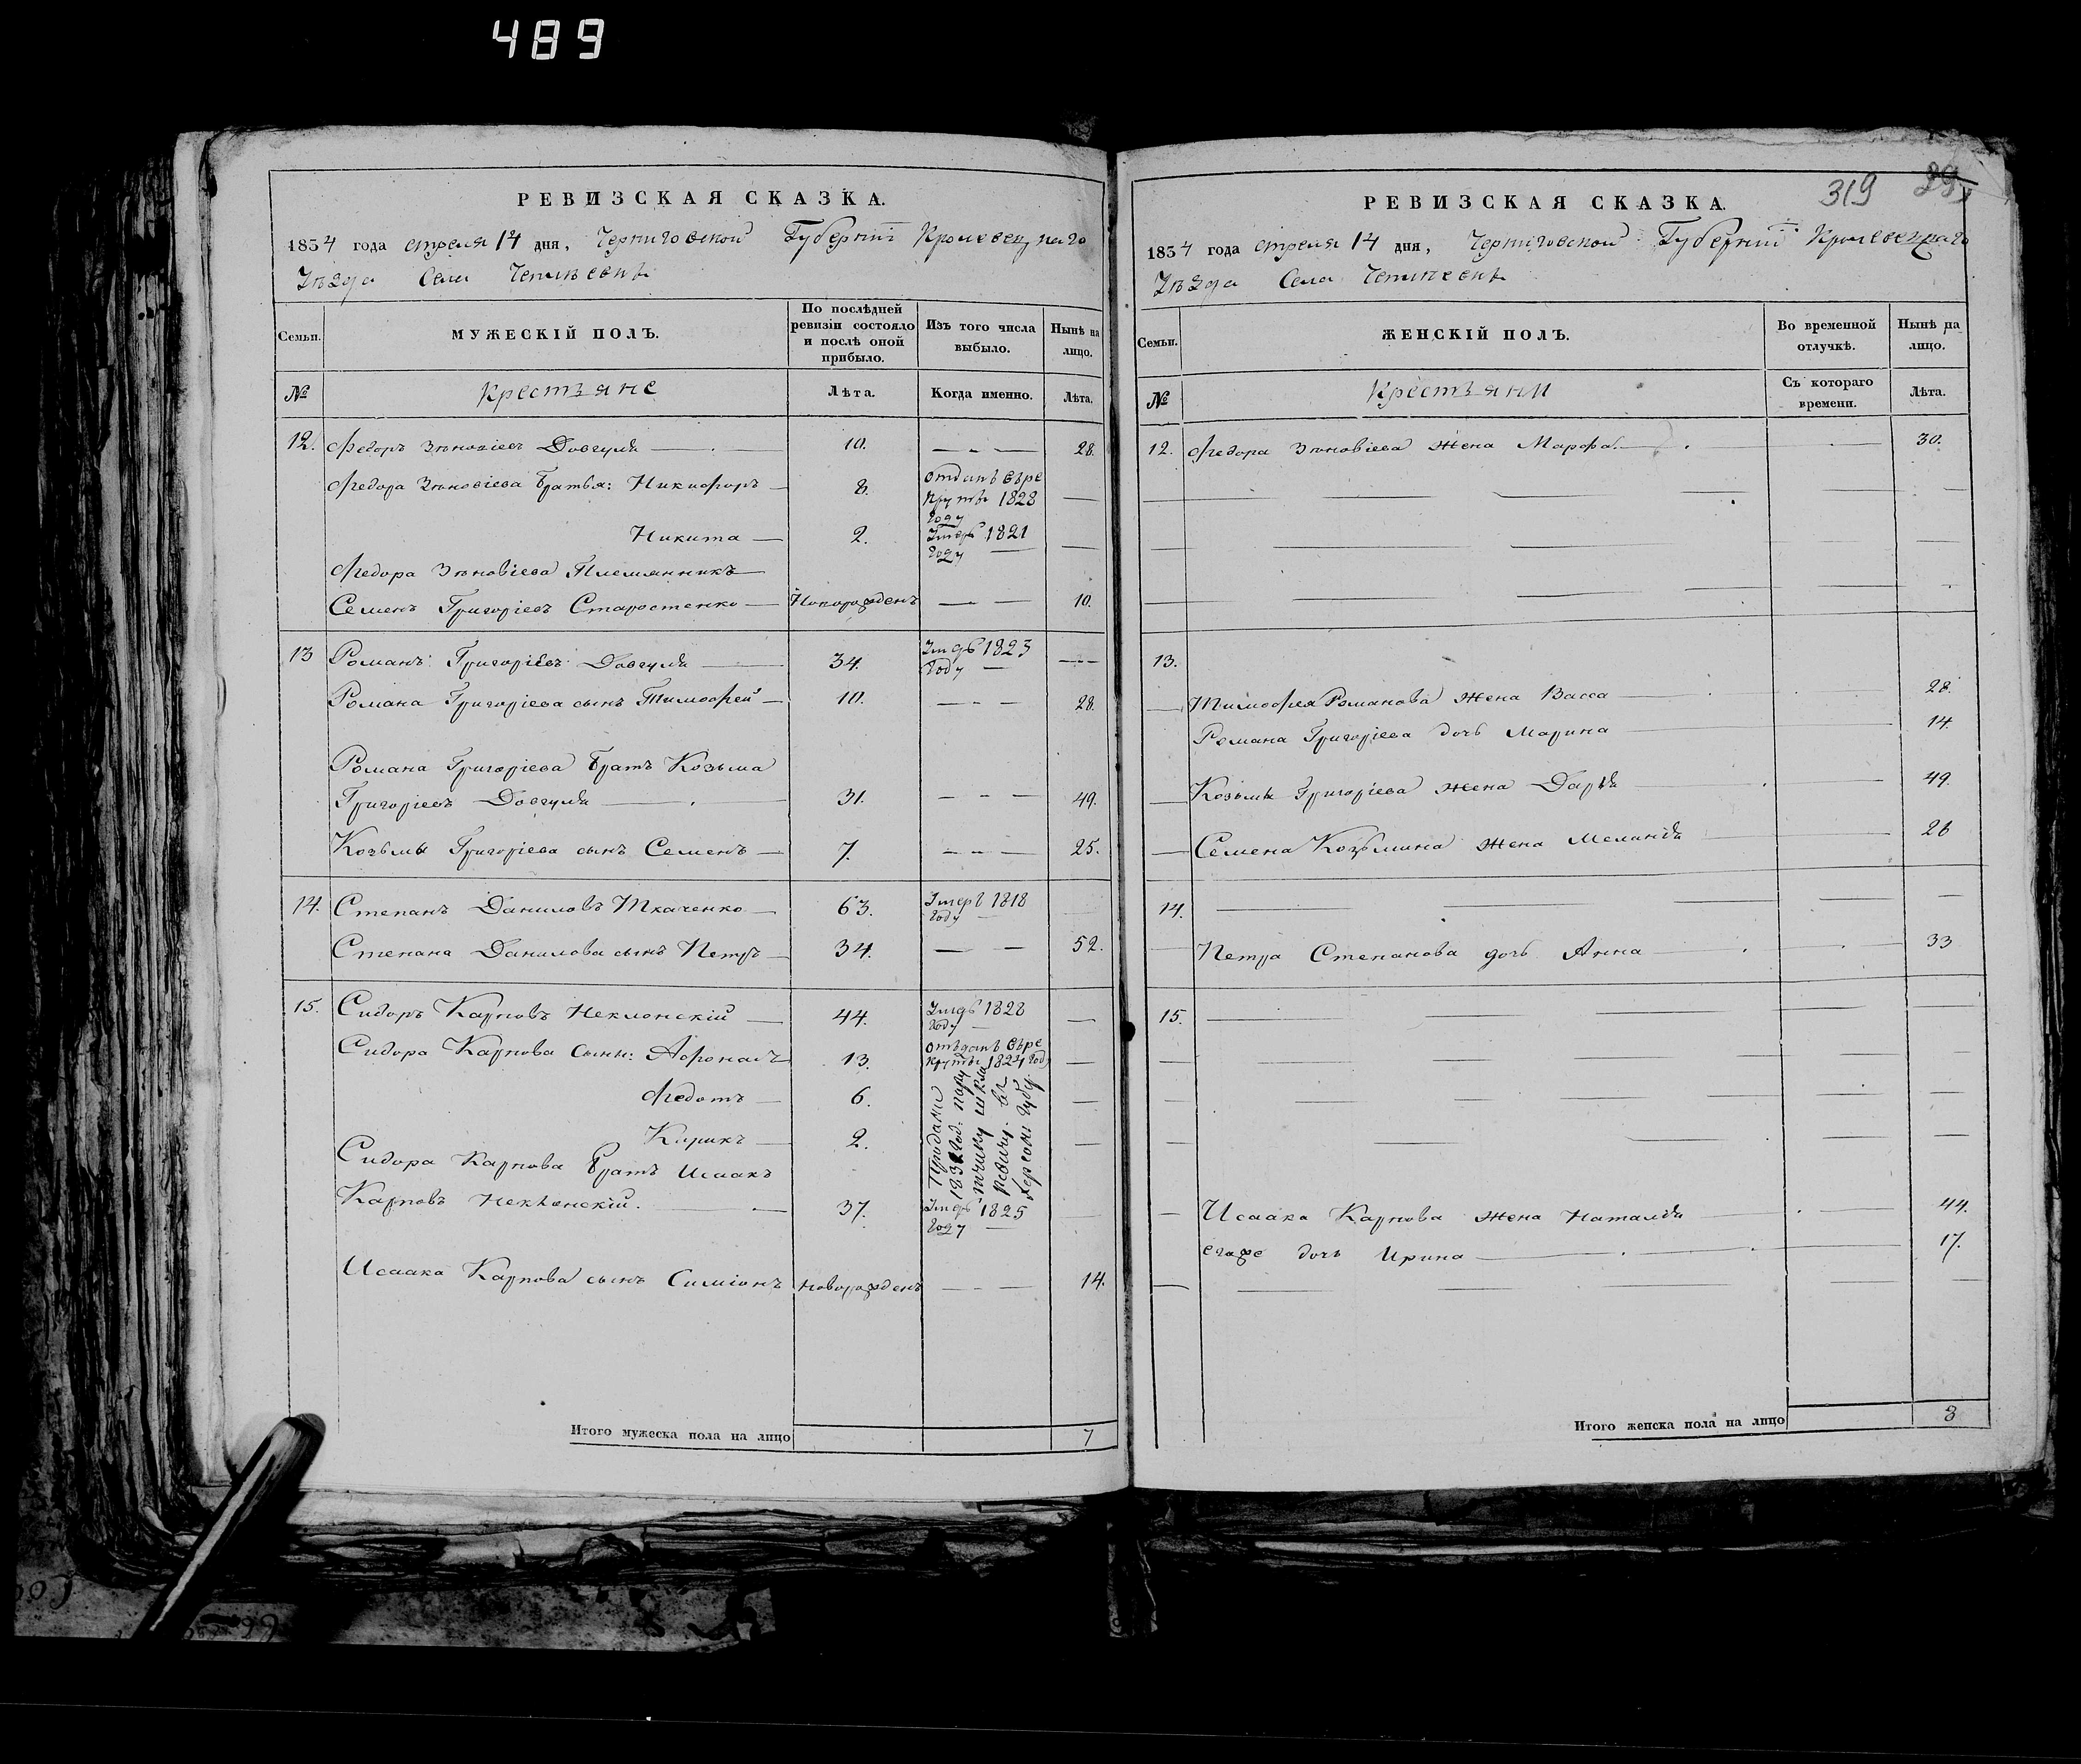 489
РЕВИЗСКАЯ СКАЗКА.
1834 года апреля 14 дня, Черниговской Губерніи Кролевецкаго
Уѣзда Села
Семьи.
МУЖЕСКІЙ ПОЛЪ.
По послѣдней ревизіи состояло и послѣ оной прибыло.
Изъ того числа выбыло.
Нынѣ на лицо.
№
Крестьяне
Лѣта.
Когда именно.
Лѣта.
12. Федоръ Зѣновіевъ Довгуля 10. 28.
Федора Зѣновіева братья: Никифоръ 8. отданъ въ рекруты 1828 году
Никита 2. Умеръ 1821 году
Федора Зѣновіева Племянникъ
Семенъ Григоріевъ Старостенко Новорожденъ 10.
13 Романъ Григоріевъ Довгуля 34. Умеръ 1823 году
Романа Григоріева сынъ Тимофей 10. 28.
Романа Григоріева братъ Козьма
Григоріевъ Довгуля 31. 49.
Козьмы Григоріева сынъ Семенъ 7. 25.
14. Степанъ Даниловъ Ткаченко 63. Умеръ 1818 году
Степана Данилова сынъ Петръ 34. 52.
15. Сидоръ Карповъ Неклонскій 44. Умеръ 1828 году
Сидора Карпова сыны: Афонасъ 13. отъданъ въ рекруты 1824 год
Федотъ 6.
Кирикъ 2.
Проданы
Сидора Карпова братъ Исаакъ
Карповъ Неклонскій. 37. Умеръ 1825 году
Исаака Карпова сынъ Симіонъ новорожденъ 14.
Итого мужеска пола на лицо 7
319 29
РЕВИЗСКАЯ СКАЗКА.
1834 года апреля 14 дня, Черниговской Губерніи Кролевецкаго
Уѣзда Села
Семьи.
ЖЕНСКІЙ ПОЛЪ.
Во временной отлучкѣ.
Нынѣ на лицо.
№
Крестьяни
Съ котораго времени.
Лѣта.
12. Федора Зѣновіева жена Марфа 30.
13.
Тимофея Романова жена Васса 28.
Романа Григоріева дочь Марина 14.
Козьмы Григоріева жена Дарья 49.
Семена Козьмина жена Меланія 26
14.
Петра Степанова дочь Анна 33
15.
Исаака Карпова жена Наталія 44.
егоже дочь Ирина 17.
Итого женска пола на лицо 8